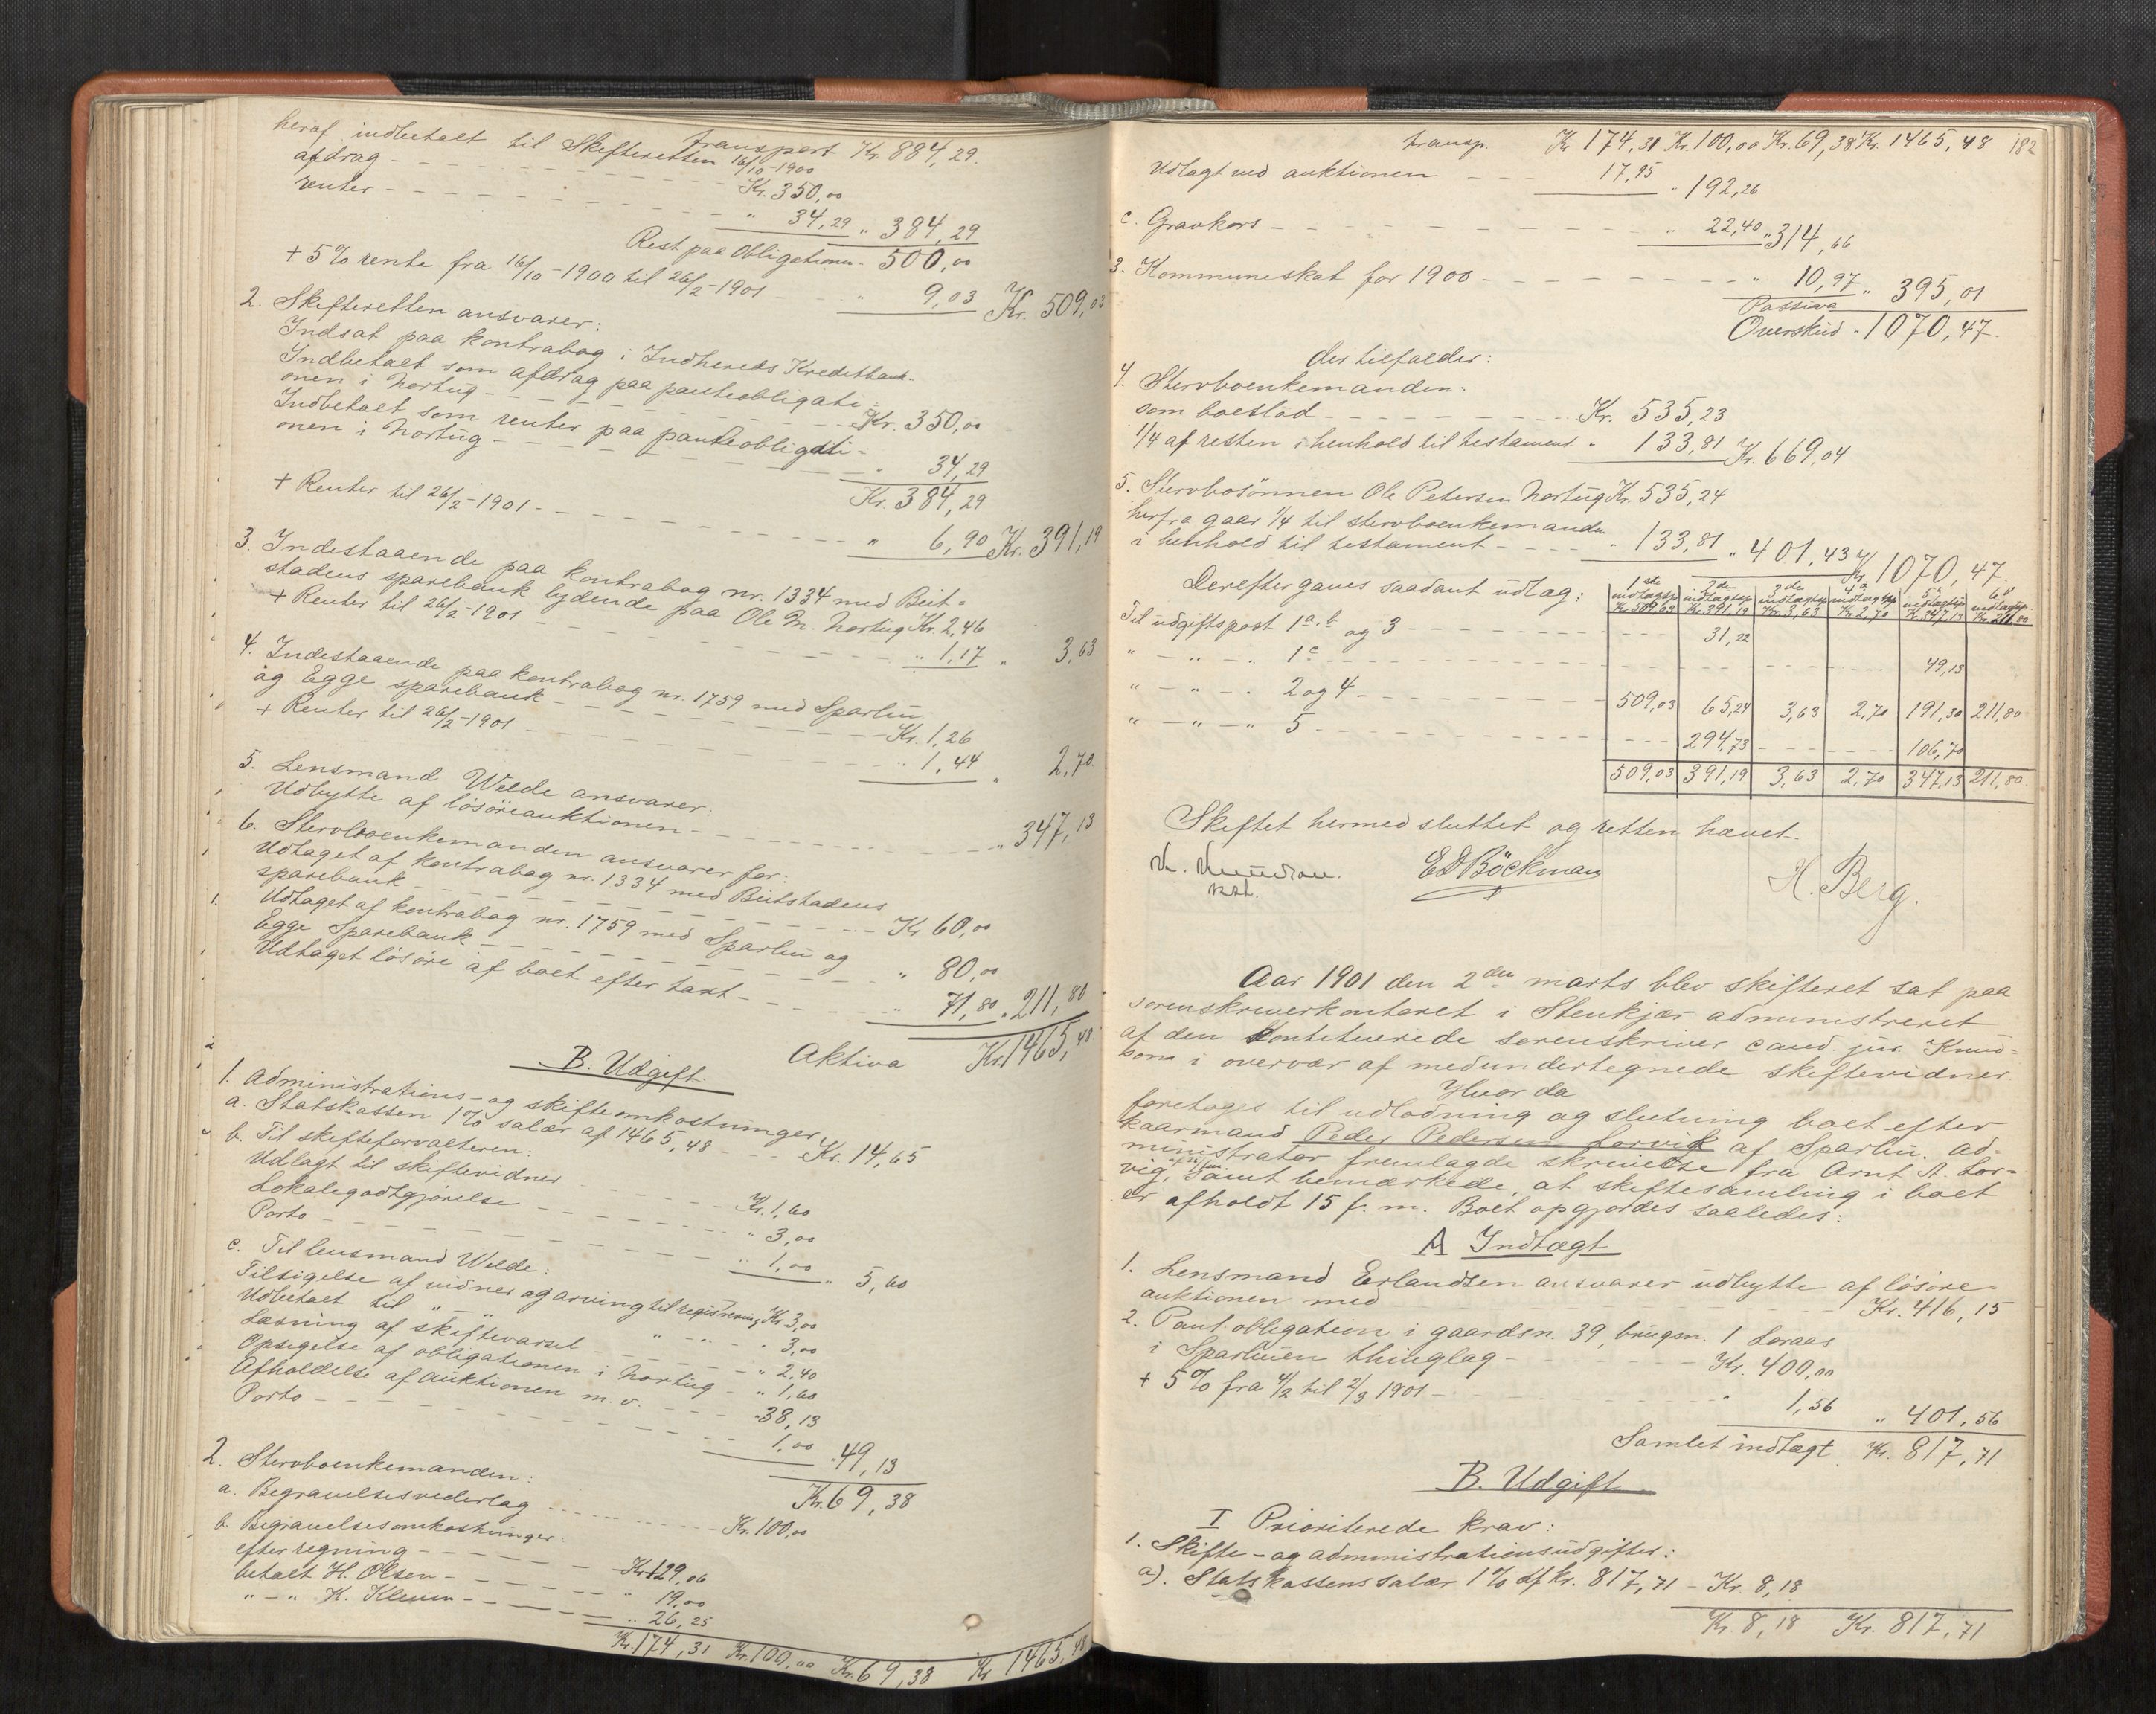 transport Kr. 884,29.
heraf indbetalt til Skifteretten 16/10-1900
afdrag - - - Kr. 350,00
renter - - - " 34,29 " 384,29
Rest paa Obligationen - 500,00
+ 5% rente fra 16/10-1900 til 26/2-1901 " 9,03 Kr. 509,03
2. Skifteretten ansvarer:
Indsat paa kontrabog i Indherreds Kreditbank.
Indbetalt som afdrag paa panteobligati-
onen i Nortug - - - Kr. 350,00
Indbetalt som renter paa panteobligati-
onen i Nortug - - - " 34,29
Kr. 384,29
+ Renter til 26/2-1901 - - - " 6,90 Kr. 391,19
3. Indestaaende paa kontrabog nr. 1334 med Beit-
stadens sparebank lydende paa Ole P. Nortug Kr. 2,46
+ Renter til 26/2-1901 - - - " 1,17 " 3,63
4. Indestaaende paa kontrabog nr. 1759 med Sparbu
og Egge sparebank - - - Kr. 1,26
+ Renter til 26/2-1901 - - - " 1,44 " 2,70
5. Lensmand Welde ansvarer:
Udbytte af lösöreauktionen - - - " 347,13
6. Stervboenkemanden ansvarer for:
Udtaget af kontrabog nr. 1334 med Beitstadens
sparebank - - - Kr 60,00
Udtaget af kontrabog nr. 1759 med Sparbu og
Egge Sparebank - - - " 80,00
Udtaget lösöre af boet efter taxt - - - " 71,80 " 211,80
Aktiva Kr. 1465,48
B. Udgift.
1. Administrations- og skifteomkostninger
a. Statskassen 1% salær af 1465,48 - - Kr. 14,65
b. Til skifteforvalteren:
Udlagt til skiftevidner - - - Kr. 1,60
Lokalegodtgjørelse - - - " 3,00
Porto - - - " 1,00 " 5,60
c. Til lensmand Welde:
Tilsigelse af vidner og arving til registrering Kr. 3,00
Udbetalt til " - " " - " " 3,00
Læsning af skiftevarsel - - - " 2,40
Opsigelse af obligationen i Nortug - " 1,60
Afholdelse af auktionen m. v. - - - " 38,13
Porto - - - 1,00 " 49,13
Kr. 69,38
2. Stervboenkemanden:
a. Begravelsesvederlag - - - Kr. 100,00
b. Begravelsesomkostninger:
efter regning - - - Kr. 129,06
betalt H. Olsen - - - " 19,00
" - " K. Kleven - - - " 26,25
Kr. 174,31 Kr. 100,00 Kr. 69,38 Kr 1465,48
182
transp. Kr 174,31 Kr. 100,00 Kr. 69,38 Kr. 1465,48
Udlagt ved auktionen - - - 17,95 " 192,26
c. Gravkors - - - " 22,40 " 314,66
3. Kommuneskat for 1900 - - - " 10,97 " 395,01
Passiva
Overskud - 1070,47.
der tilfalder:
4. Stervboenkemanden:
som boeslod - - - Kr. 535,23
1/4 af resten i henhold til testament " 133,81 Kr. 669,04
5. Stervbosönnen Ole Petersen Nortug Kr. 535,24
herfra gaar 1/4 til stervboenkemanden
i henhold til testament - - - " 133,81 " 401,43
Kr. 1070,47.
Derefter gaves saadant udlæg:
1ste indtægtsp. Kr. 509,03 2de indtægtsp. Kr. 391,19 3de indtægtsp. Kr. 3,63 4de indtægtsp. Kr. 2,70 5te indtægtsp. Kr. 347,13 6te indtægtsp. Kr. 211,80
Til udgiftspost 1a.b og 3 - - - 31,22
" - " - " 1c - - - 49,13
" - " - " 2 og 4 - - - 509,03 65,24 3,63 2,70 191,30 211,80
" - " - " 5 - - - 294,73 - - - 106,70
509,03 391,19 3,63 2,70 347,13 211,80
Skiftet hermed sluttet og retten hævet.
K. Knudsen. E D Böckman H. Berg.
kst.
Aar 1901 den 2den marts blev skifteret sat paa
sorenskriverkontoret i Stenkjær administreret
af den konstituerede sorenskriver cand. jur. Knud-
son i overvær af medundertegnede skiftevidner
Hvor da
foretoges til udlodning og slutning boet efter
kaarmand Peder Pedersen Lorvik af Sparbu. Ad-
ministrator fremlagde skrivelse fra Arnt A. Lor-
vig, samt bemærkede, at skiftesamling i boet
er afholdt 15 f. m. Boet opgjordes saaledes:
A Indtægt
1. Lensmand Erlandsen ansvarer udbytte af lösöre
auktionen med - - - Kr. 416,15
2. Pant. obligation i gaardsn. 39, brugsn. 1 Loraas
i Sparbuen thinglag - - - Kr. 400,00
+ 5% fra 4/2 til 2/3 1901 - - - " 1,56 " 401,56
Samlet indtægt Kr. 817,71
B. Udgift
I Prioriterede krav:
1. Skifte- og administrationsudgifter:
a). Statskassens salær 1% af kr. 817,71 - Kr. 8,18
Kr. 8,18 Kr. 817,71